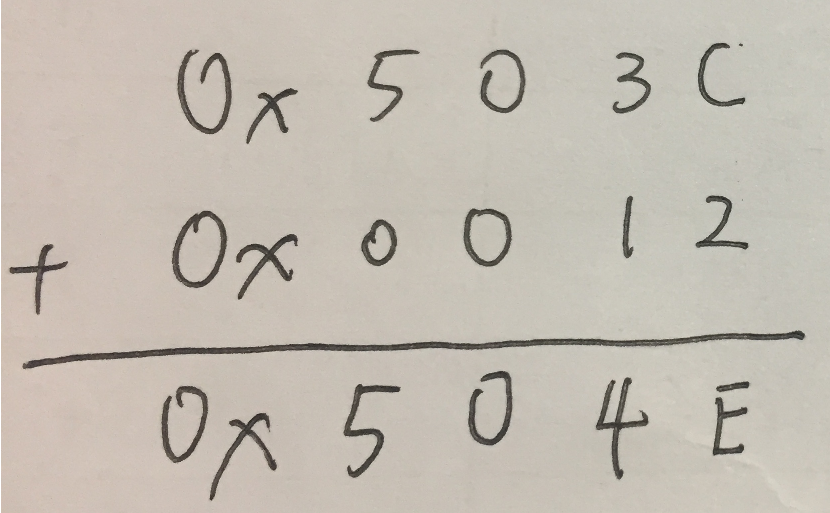 0x 5 0 3 C
+ 0x 0 0 1 2
0x 5 0 4 E